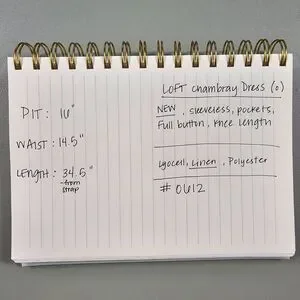 PIT: 16"
WAIST: 14.5"
LENGTH: 34.5"
-from
strap
LOFT Chambray Dress (0)
NEW, sleeveless, pockets,
Full button, Knee length
Lyocell, Linen, Polyester
# 0612